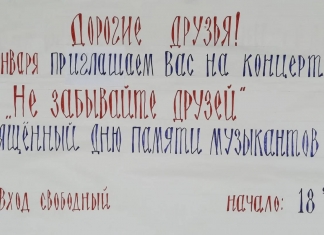 Дорогие друзья!
нваря приглашаем Вас на концерт
„Не забывайте друзей“
ящённый Дню памяти музыкантов
Вход свободный начало: 18